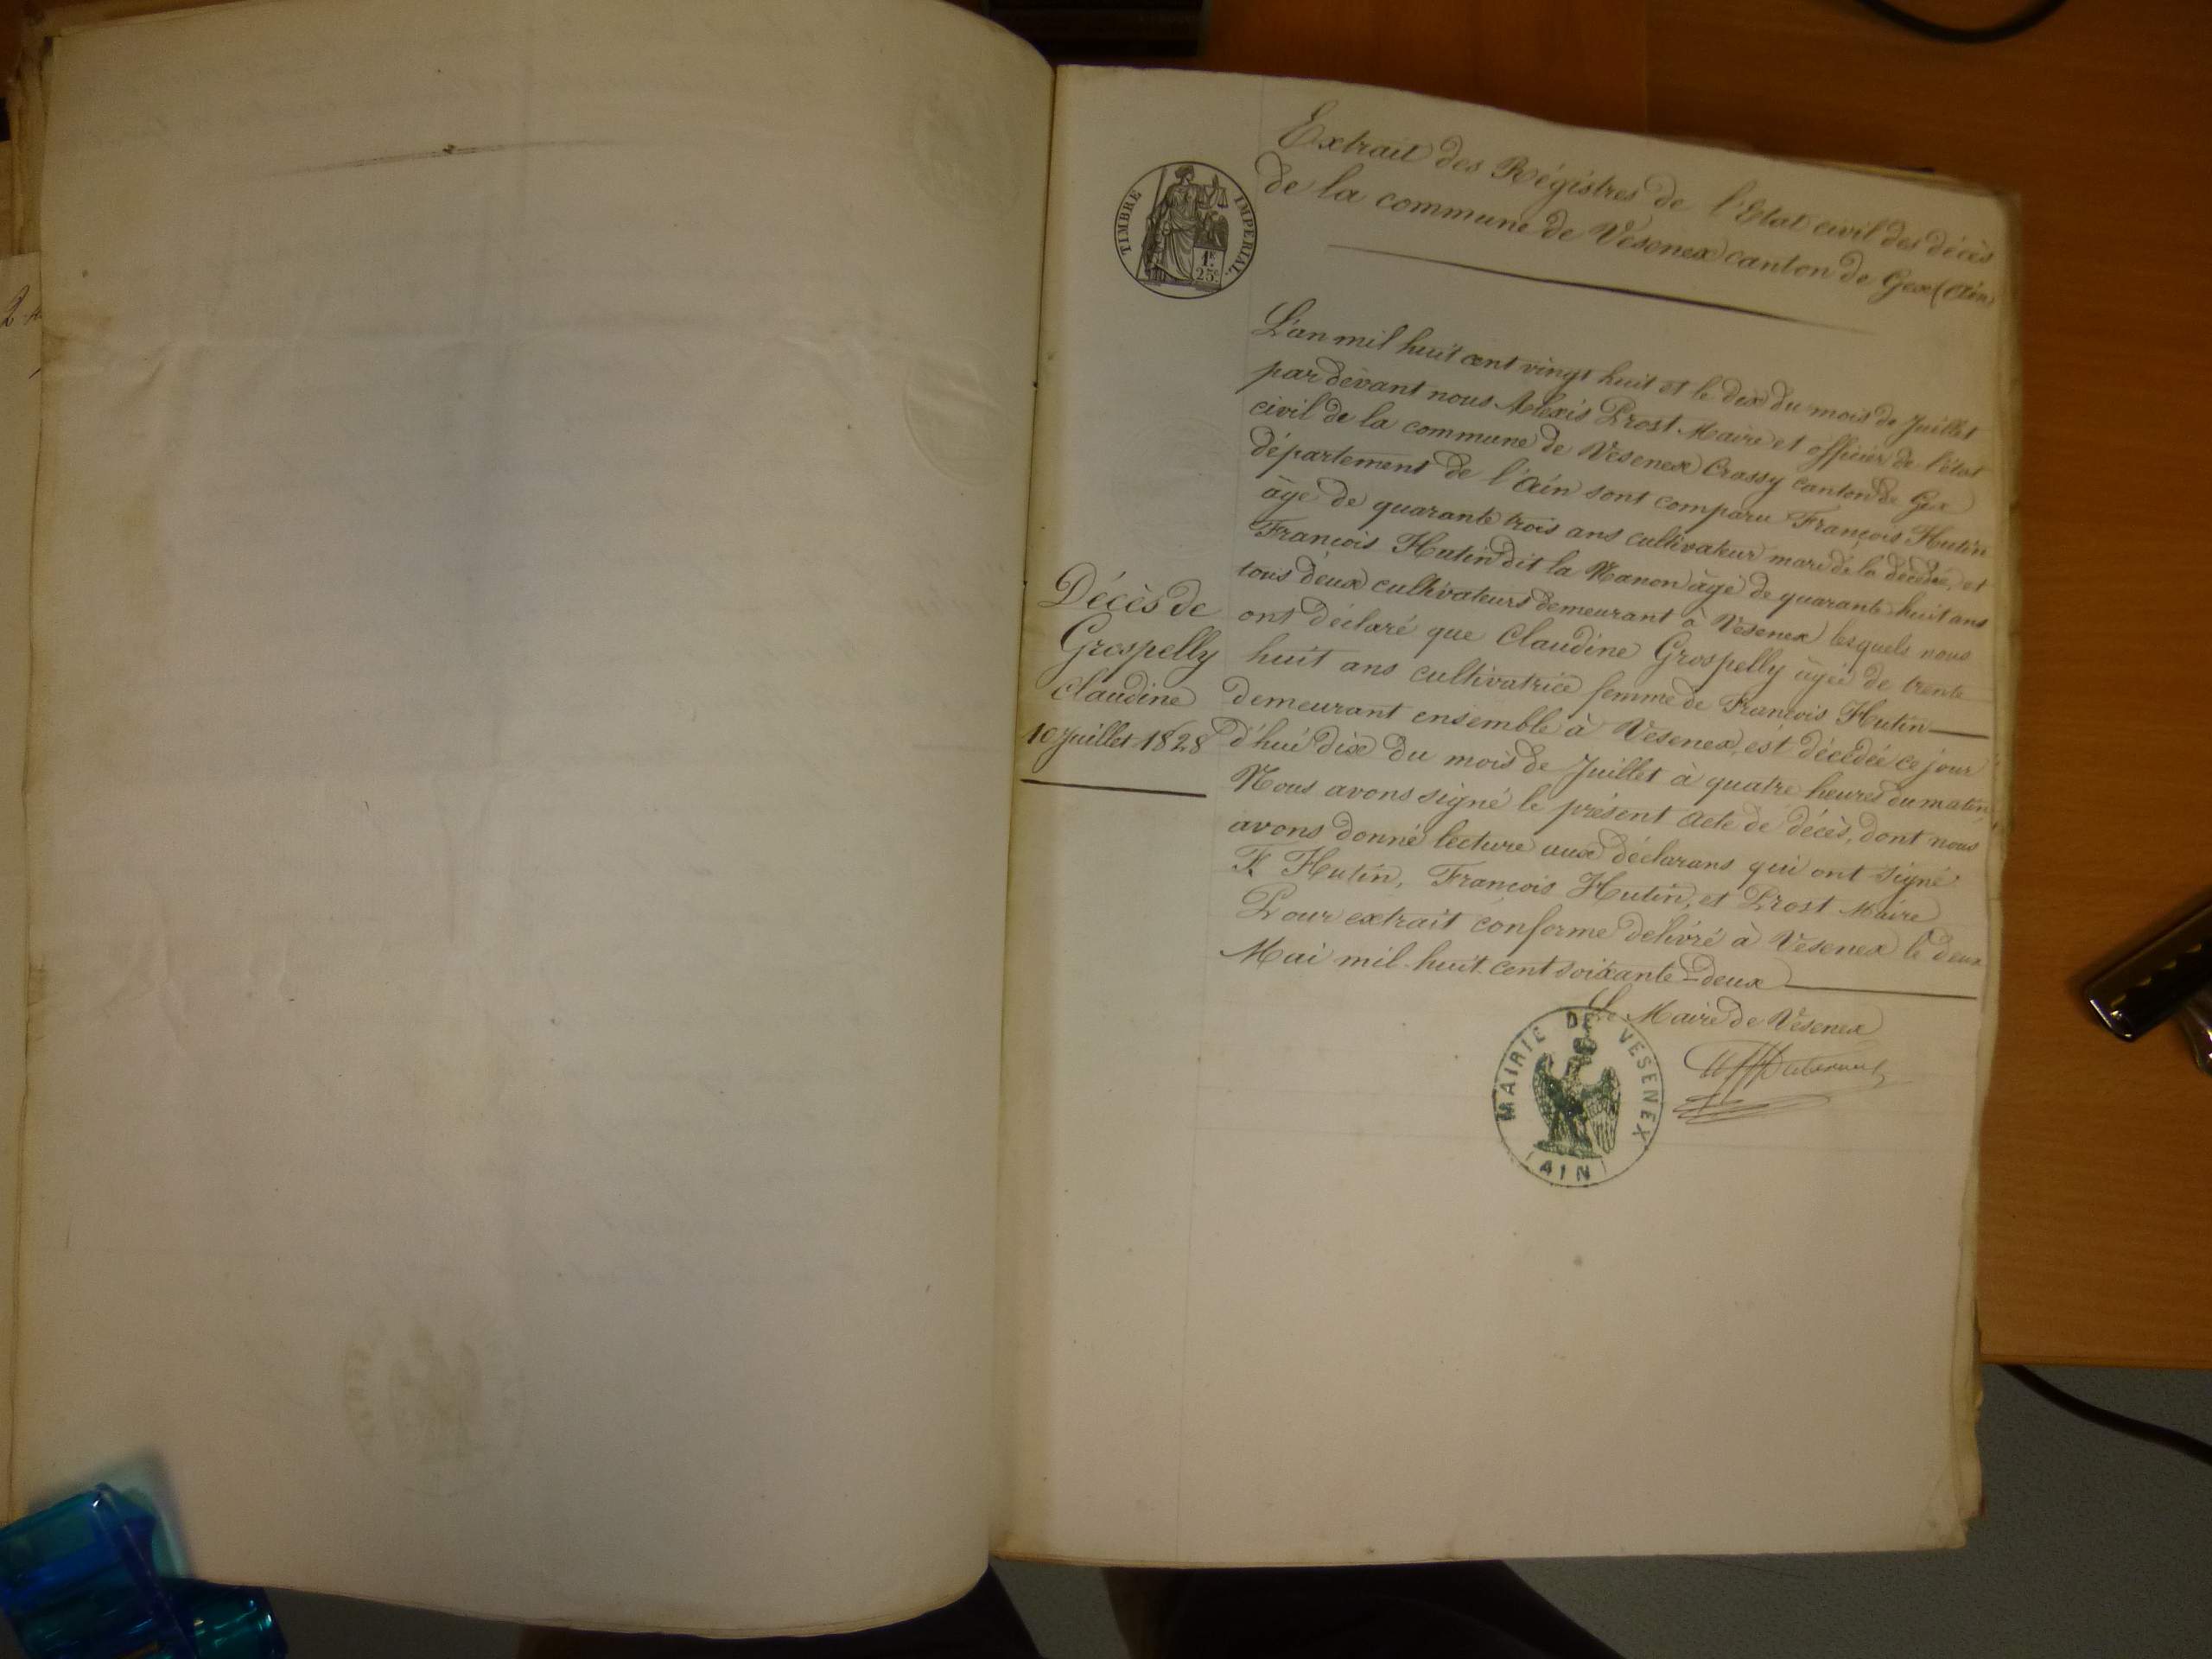 Extrait des Régistres de l'Etat civil des décès
de la commune de Vésenex canton de Gex (Ain)
TIMBRE IMPERIAL
1F
25c
L'an mil huit cent vingt huit et le dix du mois de Juillet
par devant nous Alexis Prost Maire et officier de l'état
civil de la commune de Vésenex Crassy canton de Gex
département de l'Ain sont comparu François Hutin
âgé de quarante trois ans cultivateur mari de la décédée, et
François Hutin dit la Nanon âgé de quarante huit ans
tous deux cultivateurs demeurant à Vésenex lesquels nous
ont déclaré que Claudine Grospelly âgée de trente
huit ans cultivatrice femme de François Hutin
demeurant ensemble à Vesenex, est décédée ce jour
d'hui dix du mois de Juillet à quatre heures du matin
Nous avons signé le présent Acte de décès, dont nous
avons donné lecture aux déclarans qui ont signé
F. Hutin, François Hutin, et Prost Maire
Pour extrait conforme délivré à Vésenex le deux
Mai mil huit cent soixante-deux
Le Maire de Vésenex
MAIRIE DE VESENEX
(AIN)
Décès de
Grospelly
Claudine
10 Juillet 1828